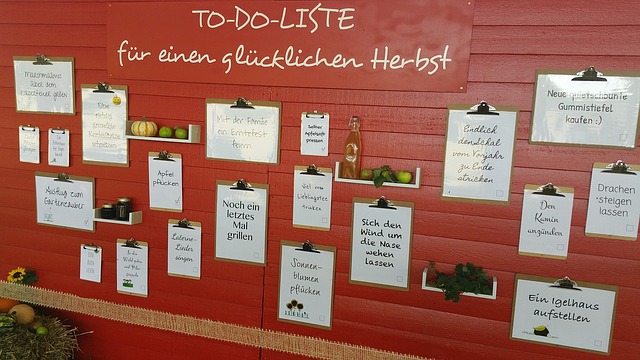 TO-DO-LISTE
für einen glücklichen Herbst
über dem
grillen
Mit der Familie
ein Erntefest
feiern
Selber
Apfelsaft
pressen
Endlich
den Schal
vom Vorjahr
zu Ende
stricken
Neue quietschbunte
Gummistiefel
kaufen :)
Ausflug zum
Gartenzauber
Apfel
pflücken
Noch ein
letztes
Mal
grillen
Viel vom
Lieblingstee
trinken
Sich den
Wind um
die Nase
wehen
lassen
Den
Kamin
anzünden
Drachen
steigen
lassen
Laterne-
Lieder
singen
Sonnen-
blumen
pflücken
Ein Igelhaus
aufstellen